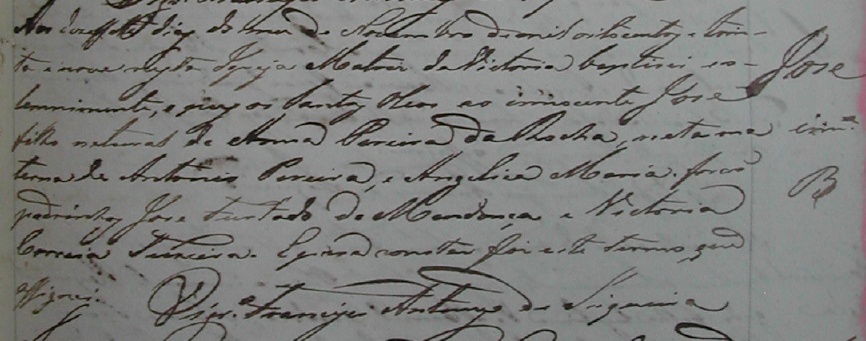 Aos dezessete dias do mes de Novembro de mil oitocentos e trin-
ta e nove nesta Igreja Matriz da Victoria baptizei so-
lemnimente, e puz os Santos Oleos ao innocente José
filho natural de Anna Pereira da Rocha, neta ma
terna de Antonio Pereira, e Angelica Maria. forão
padrinhos Jose Furtado de Mendonça e Victoria
Correia Teixeira. E para constar fiz este termo, que
assignei.
Vigr.º Francisco Antonio de Siqueira
Jose
inn.e
B